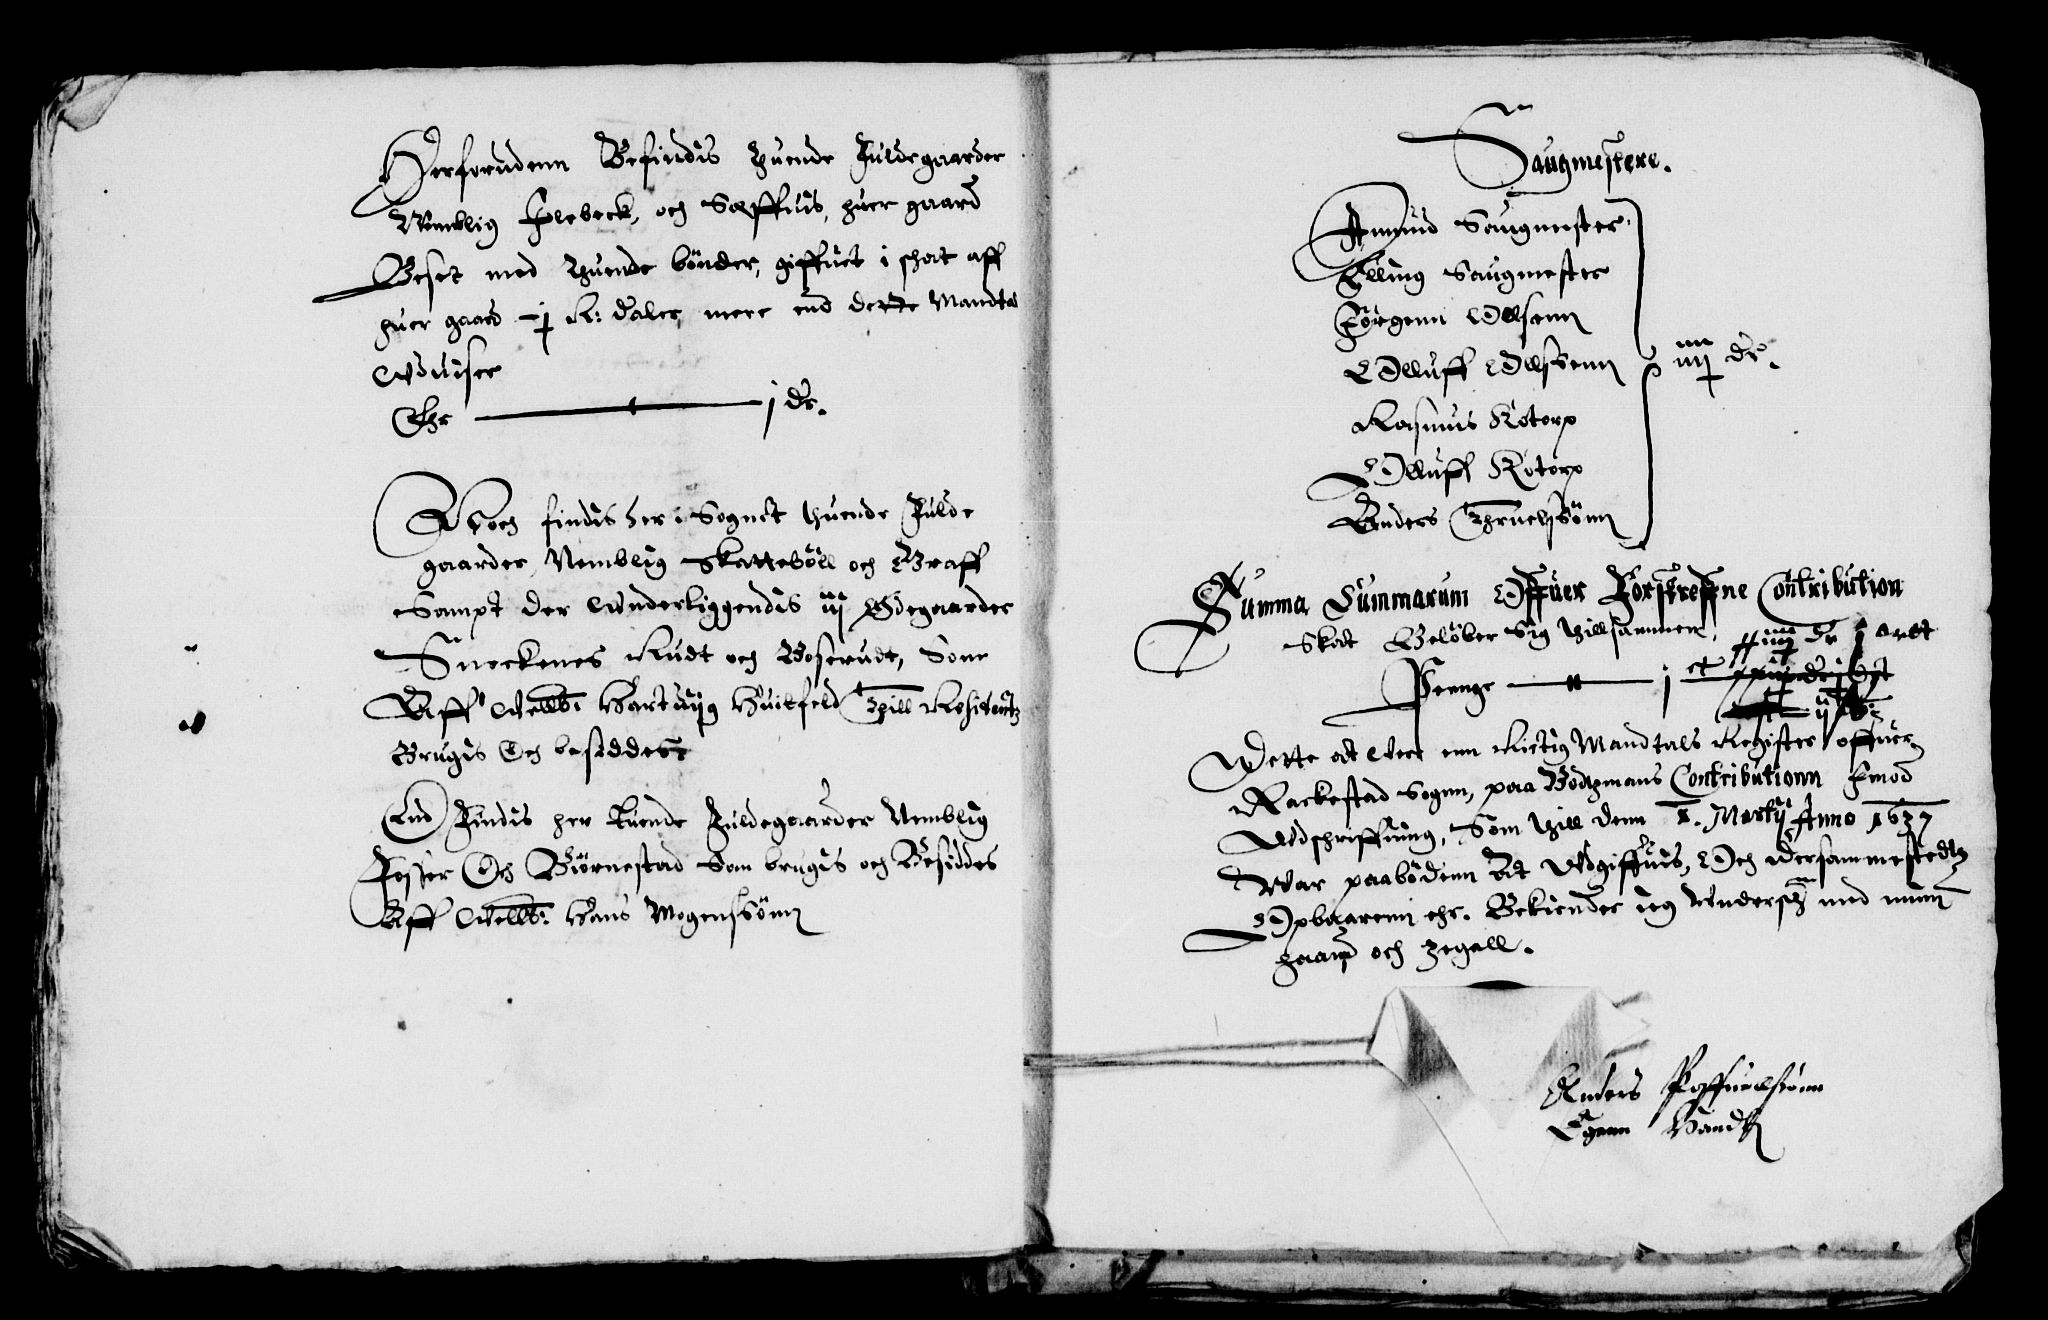 Herforudenn Befindis thuende Fuldegaarder
Nemblig Holebeck, och Sæffuis, huer gaard
Beset med thuende bönder, giffuet i skat aff
huer gaard -j R: daler, mere end dette Mandtal
Wduiser
Ehr j dr.
Noch findis her i Sognet thuende Fulde
gaarder, Nemblig Skattebøll och Graff
Sampt der Wnderliggendis iij Ødegaarder
Sneckenes Rudt och Boserudt, Som
Aff Wellb: Hartuiig Huitfeld Thill Resident
Brugis Och besiddes
End Findis her tuende Fuldegaarder Nemblig
Foster Och Biörnestad Som brugis och Besiddes
Aff Wellb: Hans Mogenssönn
Saugmestere.
Amund Saugmester
Elling Saugmester
Jörgenn Ollsenn
Olluff Ollssenn
Rasmus Kotorp
Olluff Kotorp
Anders Thruelssönn
iiij dr.
Summa Summarum Offuer Forskreffne Contribution
Skat Belöber Sig thillsammen,
Penge j ct dr j ortt
Dette at Were enn Rictig Mandtals Register offuer
Rackestad Sogen, paa Bodzmans Contributionn Imod
Wdschriffning, Som thill denn 1. Martij Anno 1637
War paabödenn At Wdgiffuis, Och dersammestedtz
Opbaarenn ehr. Bekiender ieg Vnderschr med min
haand och zegell.
Anders Poffuelssönn
Egenn Handt